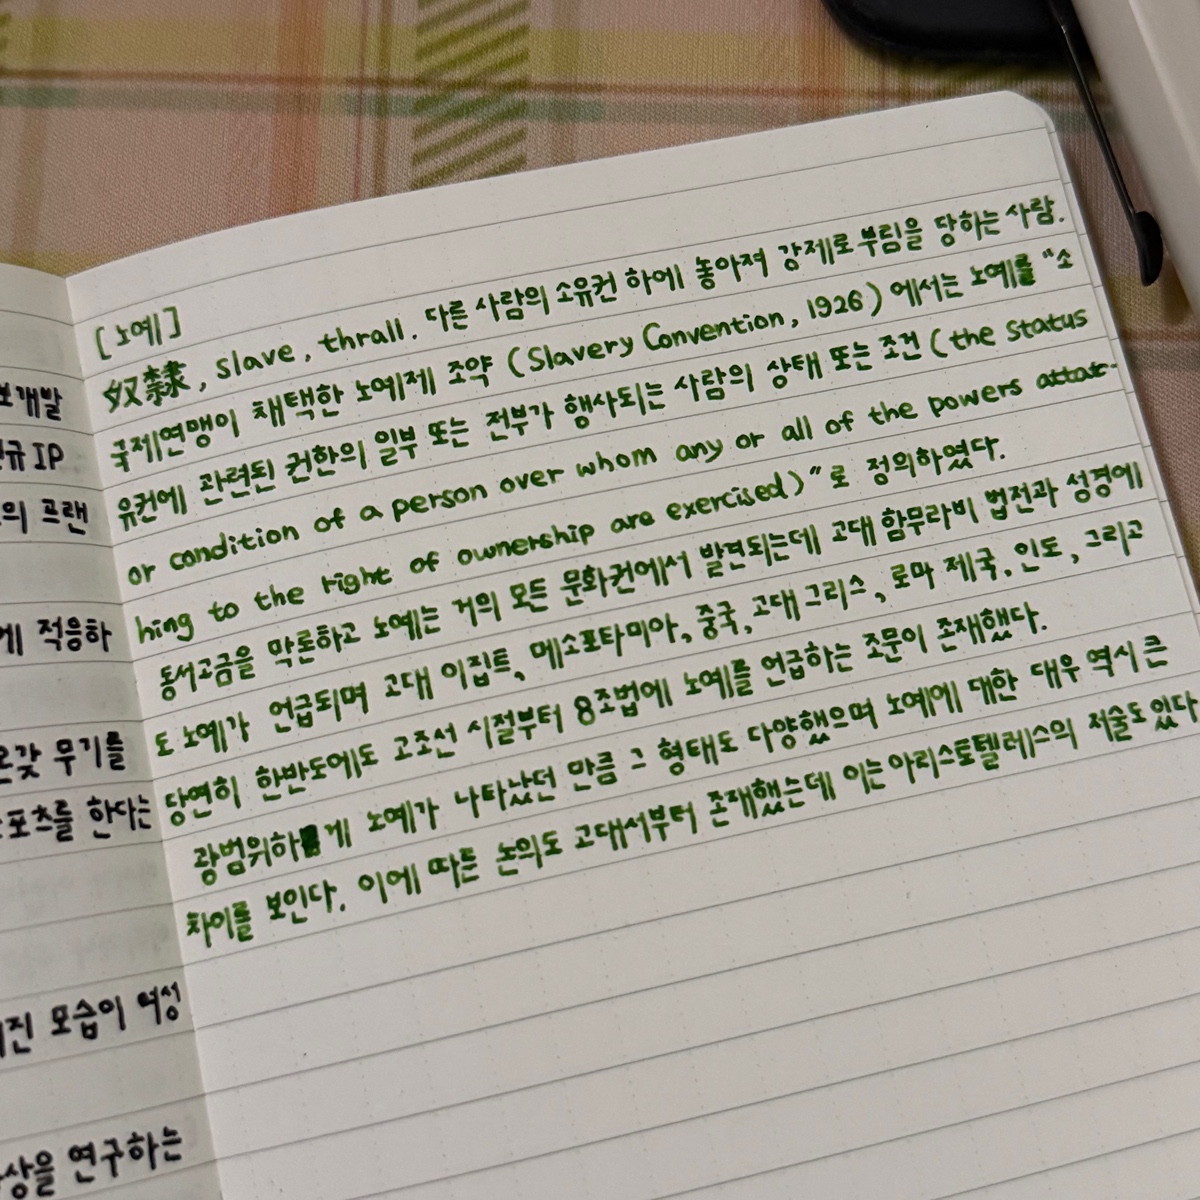 보개발
규 IP
의 프랜
게 적응하
온갖 무기를
포츠를 한다는
진 모습이 여성
상을 연구하는
[노예]
奴隸, slave, thrall. 다른 사람의 소유권 하에 놓아져 강제로 부림을 당하는 사람.
국제연맹이 채택한 노예제 조약 (Slavery Convention, 1926) 에서는 노예를 "소
유권에 관련된 권한의 일부 또는 전부가 행사되는 사람의 상태 또는 조건 (the status
or condition of a person over whom any or all of the powers attac-
hing to the right of ownership are exercised)"로 정의하였다.
동서고금을 막론하고 노예는 거의 모든 문화권에서 발견되는데 고대 함무라비 법전과 성경에
도 노예가 언급되며 고대 이집트, 메소포타미아, 중국, 고대 그리스, 로마 제국, 인도, 그리고
당연히 한반도에도 고조선 시절부터 8조법에 노예를 언급하는 조문이 존재했다.
광범위하게 노예가 나타났던 만큼 그 형태도 다양했으며 노예에 대한 대우 역시 큰
차이를 보인다. 이에 따른 논의도 고대서부터 존재했는데 이는 아리스토텔레스의 저술도 있다